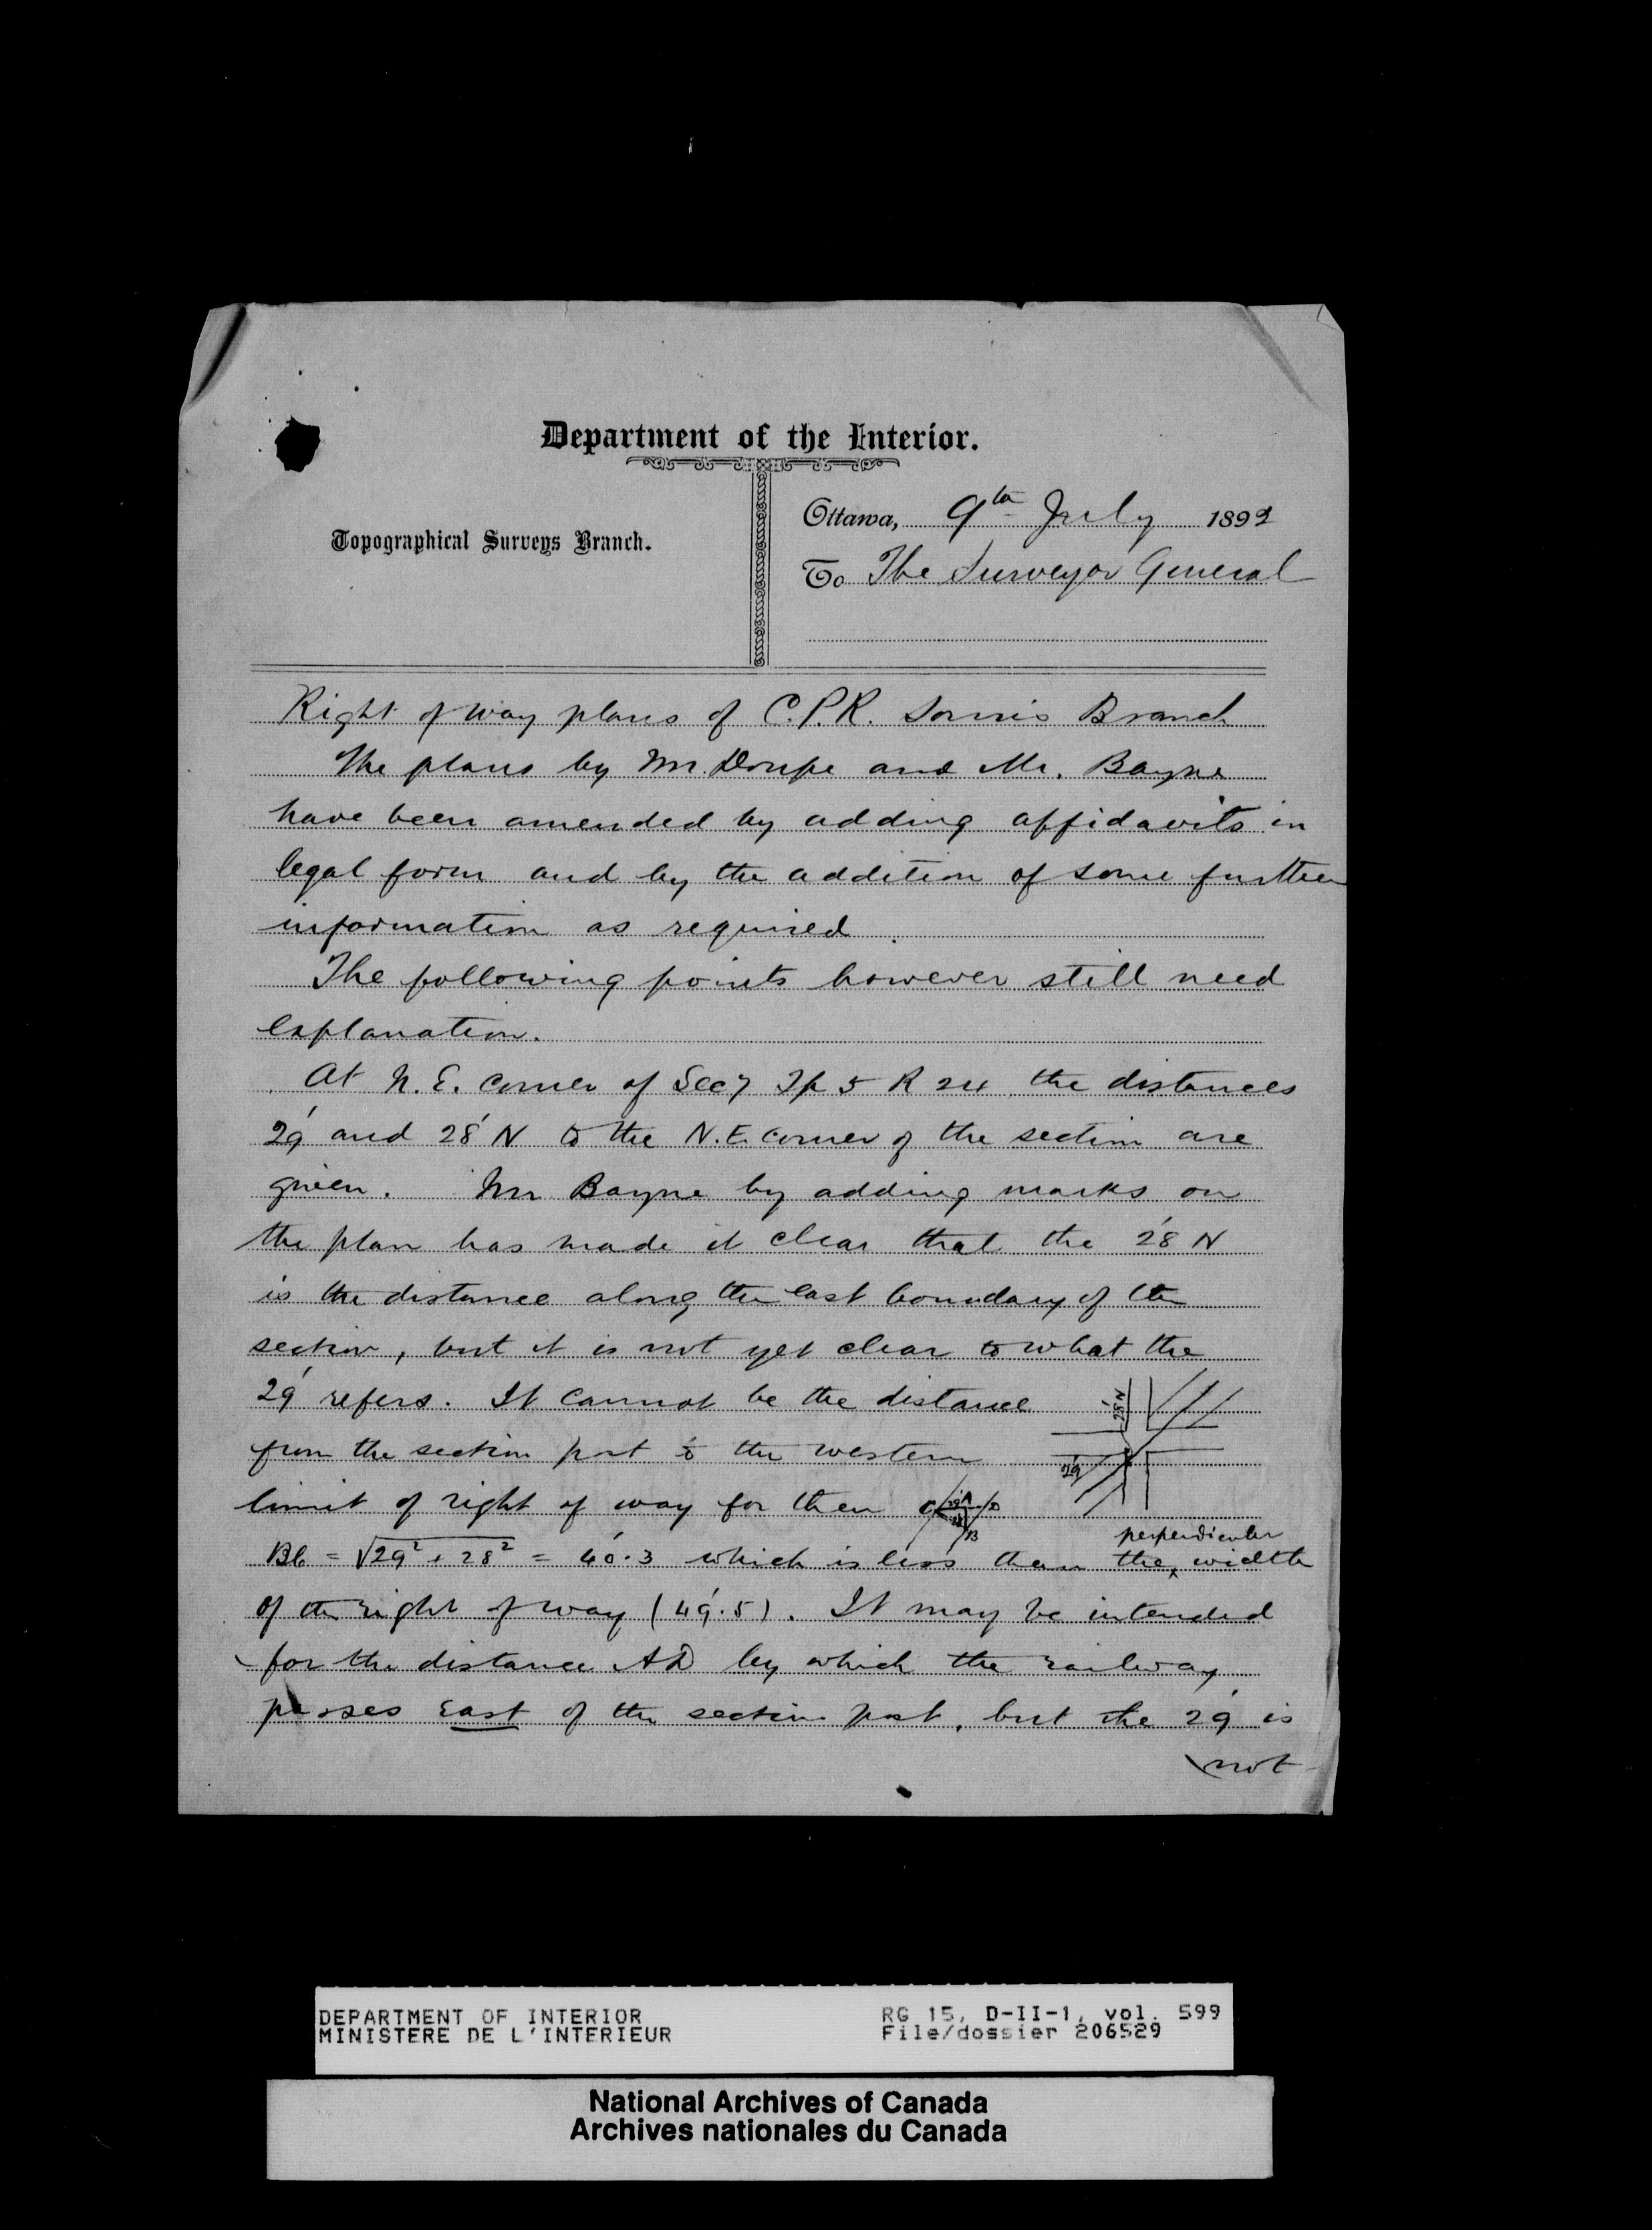 Department of the Interior.
Topographical Surveys Branch.
Ottawa, 9th July 1892
To The Surveyor General
Right of Way plans of C.P.R. Souris Branch
The plans by Mr. Doupe and Mr. Bayne
have been amended by adding affidavits in
legal form and by the addition of some further
information as required.
The following points however still need
explanation.
At N.E. corner of Sec 7 Tp 5 R 24 the distances
29' and 28' N to the N.E. corner of the section are
given. Mr Bayne by adding marks on
the plan has made it clear that the 28' N
is the distance along the east boundary of the
section, but it is not yet clear to what the
29' refers. It cannot be the distance
28' N
from the section post to the western
29'
limit of right of way for then C 29 A D
28
B
perpendicular
BC = √29² + 28² = 40'.3 which is less than the ‸ width
of the right of way (49'.5). It may be intended
for the distance AD by which the railway
passes East of the section post, but the 29' is
not
DEPARTMENT OF INTERIOR
MINISTERE DE L'INTERIEUR
RG 15, D-II-1, vol. 599
File/dossier 206529
National Archives of Canada
Archives nationales du Canada